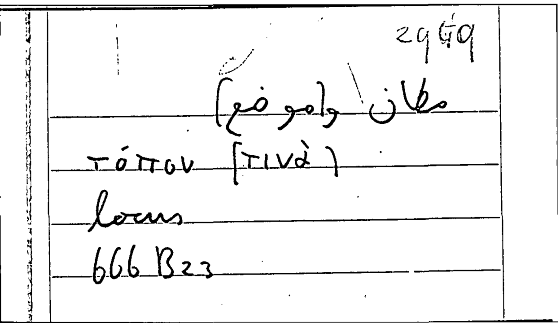 مكان و(موضع)
τόπον (τινὰ)
locus
666 B23